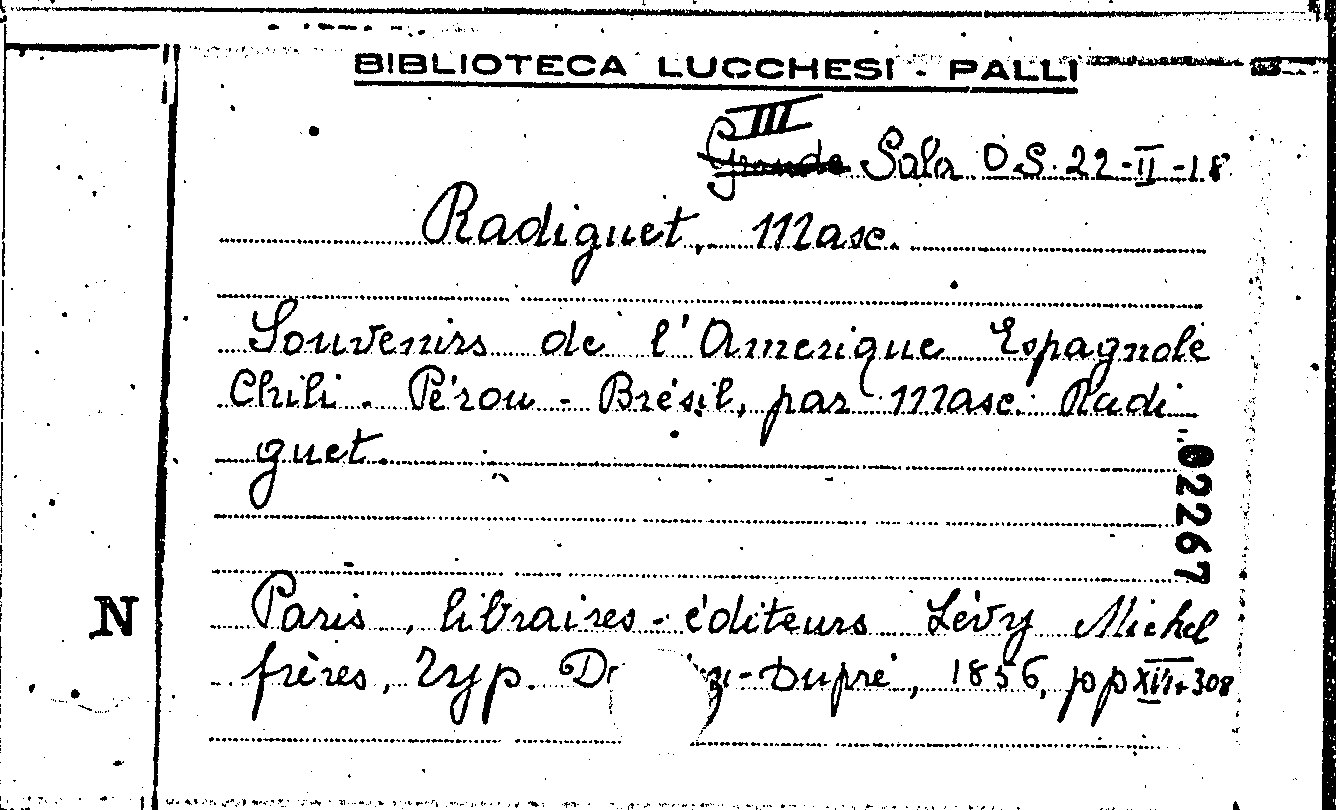 BIBLIOTECA LUCCHESI - PALLI
III
Grande Sala D.S. 22-II-18
Radiguet, Masc.
Souvenirs de l'Amerique Espagnole
Chili - Pérou - Brésil, par Masc. Radi
guet.
02267
N
Paris, libraires-éditeurs Lévy Michel
frères, Typ. -Dupré, 1856, pp XII+308